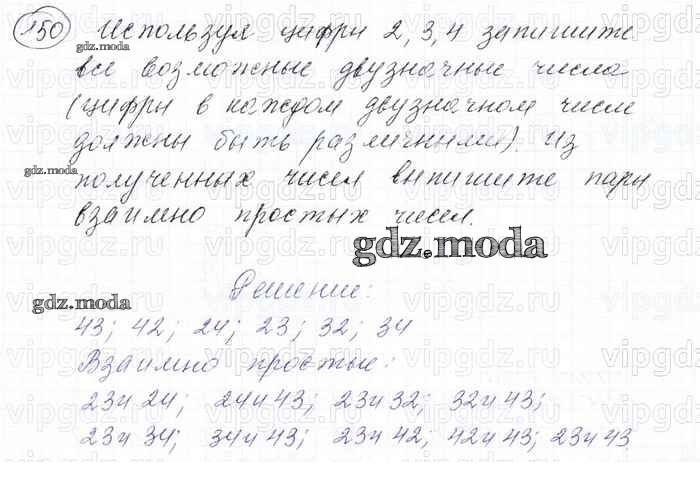 150 Используя цифры 2,3,4 запишите
gdz.moda
все возможные двузначные числа
(цифры в каждом двузначном числе
должны быть различными). Из
gdz.moda
полученных чисел выпишите пары
взаимно простых чисел.
gdz.moda
Решение:
gdz.moda
43; 42; 24; 23; 32; 34
Взаимно простые:
23 и 24; 24 и 43; 23 и 32; 32 и 43;
23 и 34; 34 и 43; 23 и 42; 42 и 43; 23 и 43
vipgdz.ru